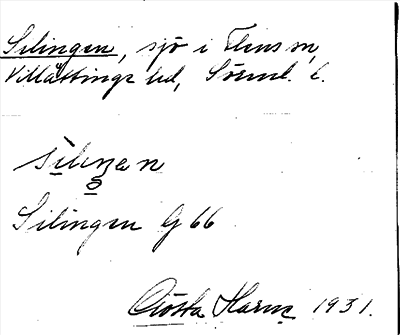 Silingen, sjö i Flens sn,
Villåttinge hd, Sörml. l.
silingen
Silingen G 66
Gösta 1931.